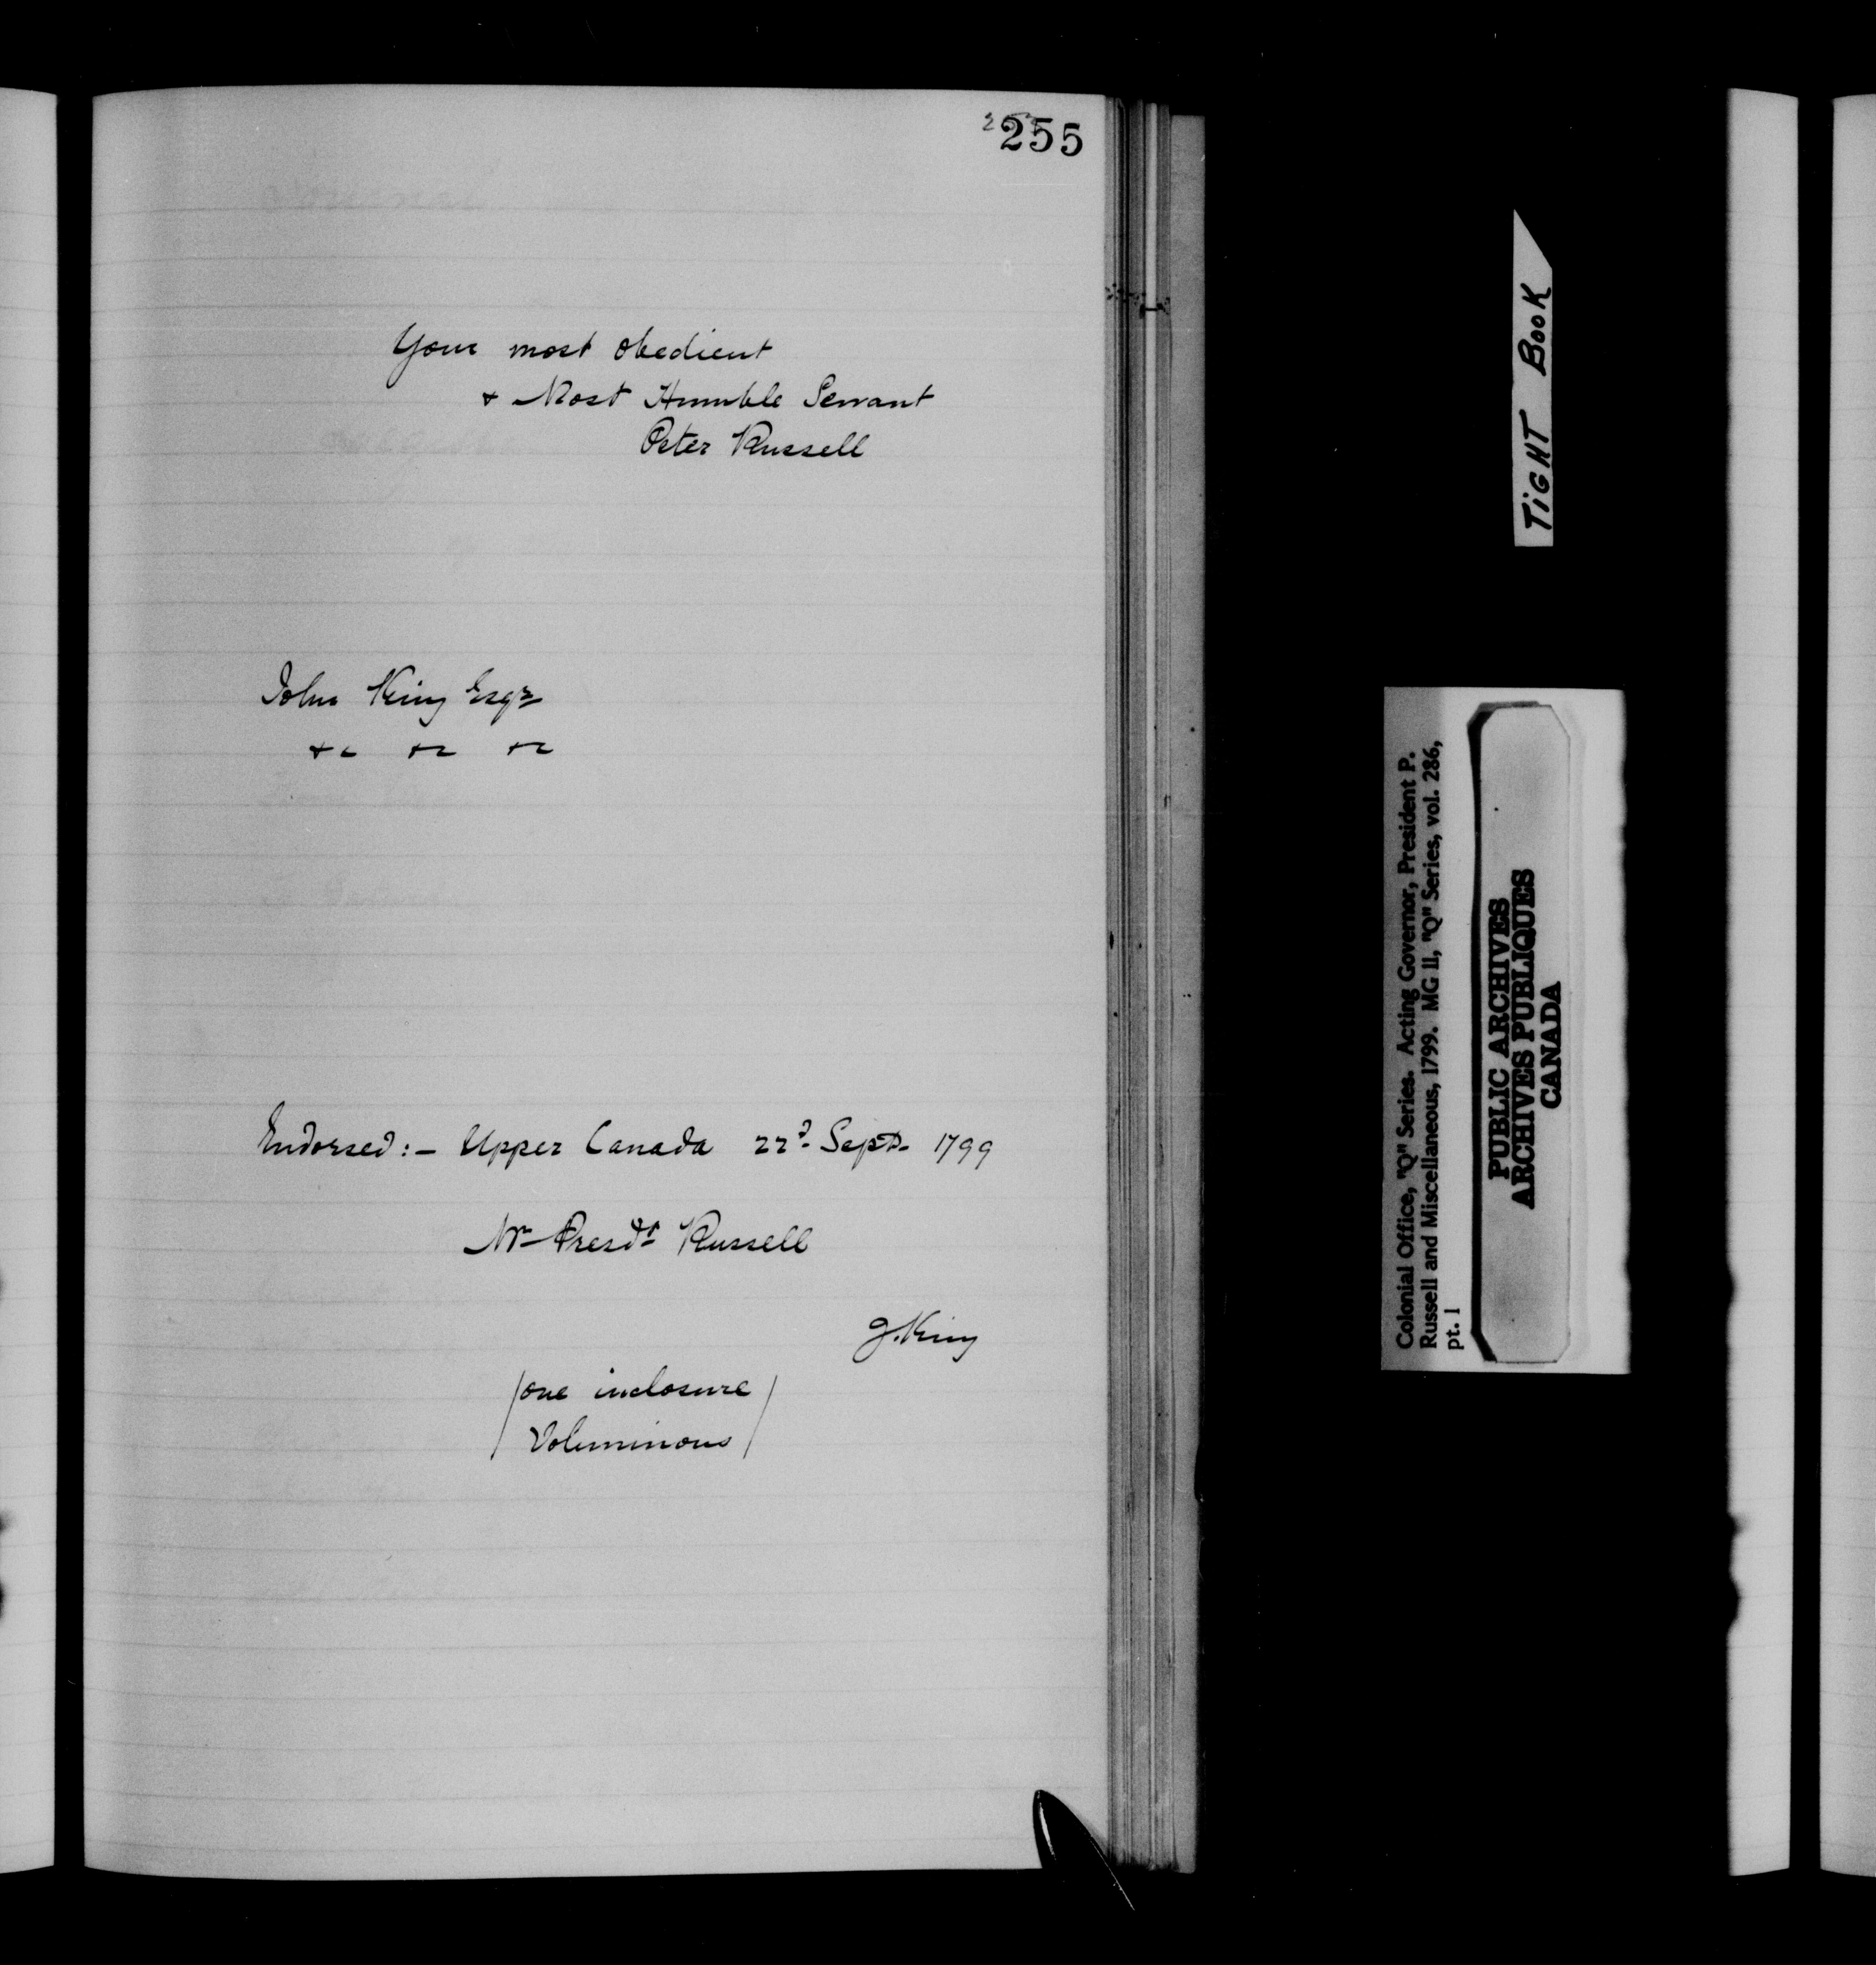 255
Your most obedient
& Most Humble Servant
Peter Russell
John King Esqr
&c &c &c
Endorsed:- Upper Canada 22d Sept. 1799
Mr Presdt Russell
J. King
/one inclosure/
/Voluminous/
TiGHT BOOK
Colonial Office, "Q" Series. Acting Governor, President P.
Russell and Miscellaneous, 1799. MG 11, "Q" Series, vol. 286,
pt. 1
PUBLIC ARCHIVES
ARCHIVES PUBLIQUES
CANADA